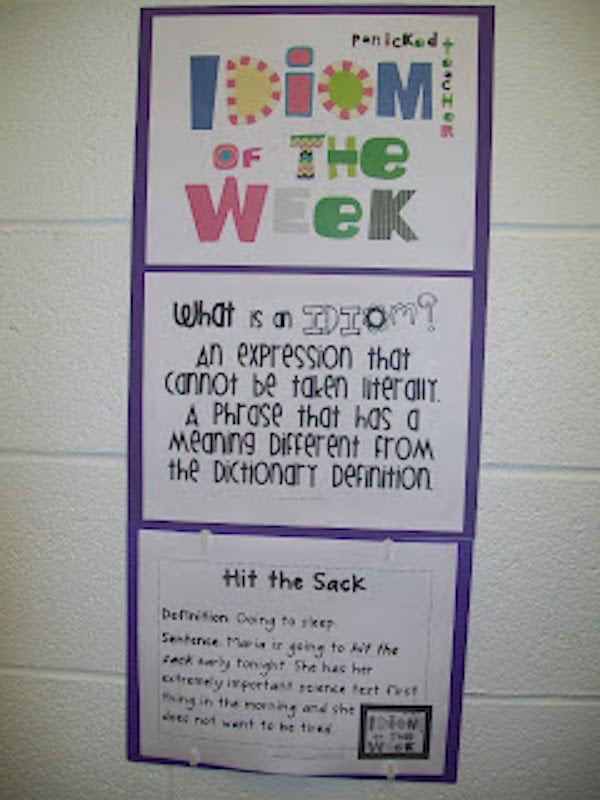 Panicked
teacher
IDiOM
OF THE
WEEK
What is an IDIOM?
An expression that
cannot be taken literally.
A phrase that has a
meaning different from
the dictionary definition.
Hit the Sack
Definition: Going to sleep.
Sentence: Maria is going to hit the
sack early tonight. She has her
extremely important science test first
thing in the morning and she
does not want to be tired.
IDiOM
OF THE
WEEK